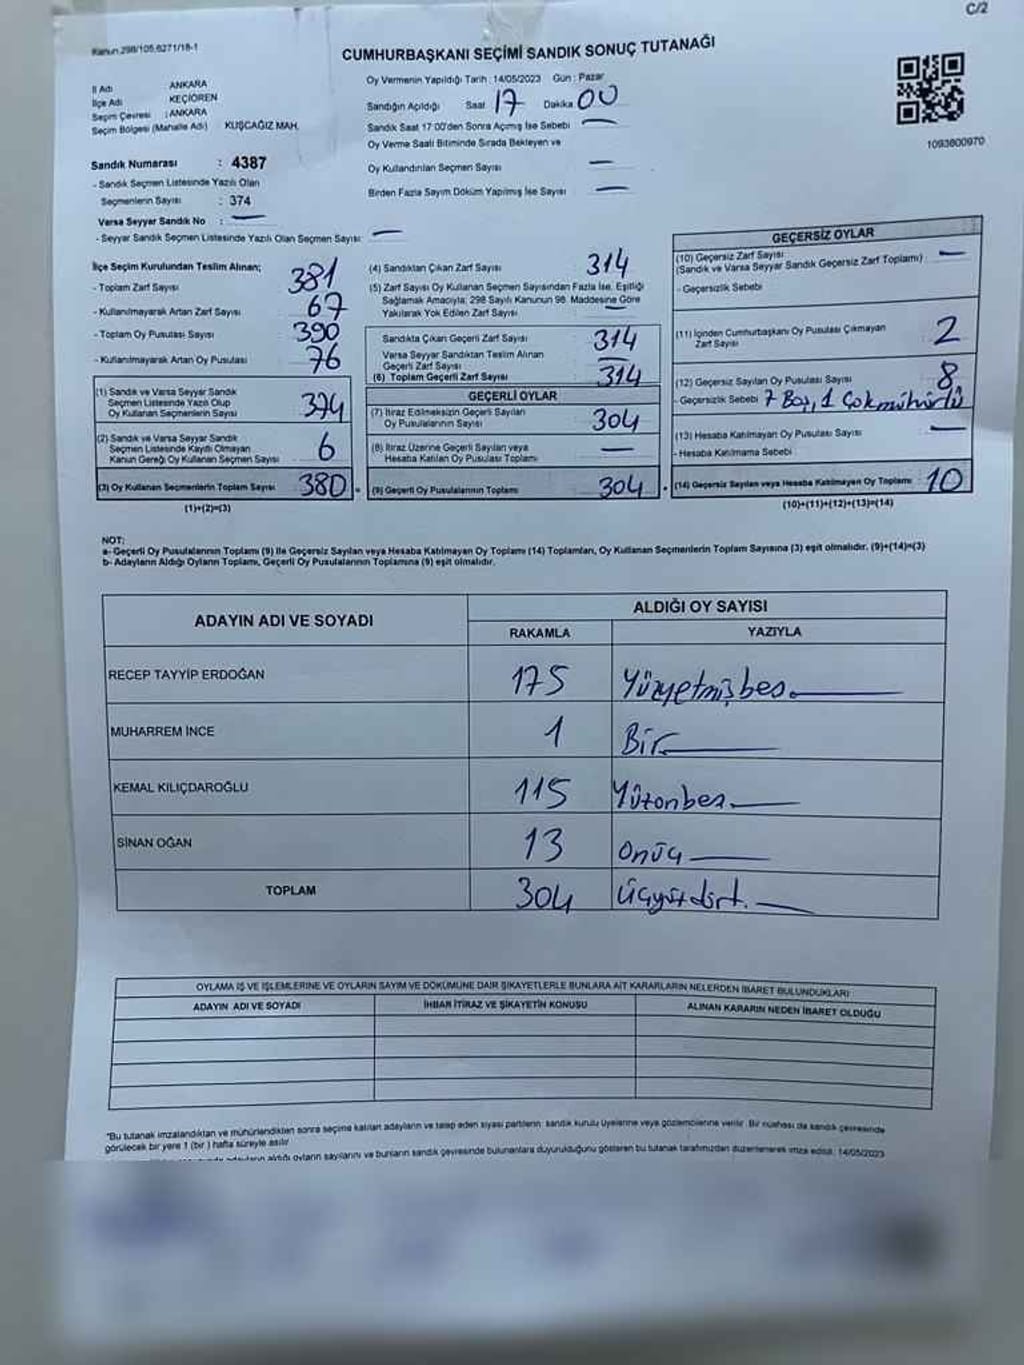 C/2
Kanun 298/105,6271/18-1
CUMHURBAŞKANI SEÇİMİ SANDIK SONUÇ TUTANAĞI
İl Adı ANKARA
İlçe Adı KEÇİÖREN
Seçim Çevresi : ANKARA
Seçim Bölgesi (Mahalle Adı) KUŞCAĞIZ MAH.
Sandık Numarası : 4387
- Sandık Seçmen Listesinde Yazılı Olan
Seçmenlerin Sayısı : 374
Varsa Seyyar Sandık No : —
- Seyyar Sandık Seçmen Listesinde Yazılı Olan Seçmen Sayısı: —
Oy Vermenin Yapıldığı Tarih : 14/05/2023 Gün : Pazar
Sandığın Açıldığı Saat 17 Dakika 00
Sandık Saat 17:00'den Sonra Açılmış İse Sebebi —
Oy Verme Saati Bitiminde Sırada Bekleyen ve
Oy Kullandırılan Seçmen Sayısı —
Birden Fazla Sayım Döküm Yapılmış İse Sayısı —
1093800970
İlçe Seçim Kurulundan Teslim Alınan;
- Toplam Zarf Sayısı 381
- Kullanılmayarak Artan Zarf Sayısı 67
- Toplam Oy Pusulası Sayısı 390
- Kullanılmayarak Artan Oy Pusulası 76
(1) Sandık ve Varsa Seyyar Sandık
Seçmen Listesinde Yazılı Olup
Oy Kullanan Seçmenlerin Sayısı 374
(2) Sandık ve Varsa Seyyar Sandık
Seçmen Listesinde Kayıtlı Olmayan
Kanun Gereği Oy Kullanan Seçmen Sayısı 6
(3) Oy Kullanan Seçmenlerin Toplam Sayısı 380
(1)+(2)=(3)
(4) Sandıktan Çıkan Zarf Sayısı 314
(5) Zarf Sayısı Oy Kullanan Seçmen Sayısından Fazla İse, Eşitliği
Sağlamak Amacıyla; 298 Sayılı Kanunun 98. Maddesine Göre
Yakılarak Yok Edilen Zarf Sayısı —
Sandıkta Çıkan Geçerli Zarf Sayısı 314
Varsa Seyyar Sandıktan Teslim Alınan
Geçerli Zarf Sayısı —
(6) Toplam Geçerli Zarf Sayısı 314
GEÇERLİ OYLAR
(7) İtiraz Edilmeksizin Geçerli Sayılan
Oy Pusulalarının Sayısı 304
(8) İtiraz Üzerine Geçerli Sayılan veya
Hesaba Katılan Oy Pusulası Toplamı —
(9) Geçerli Oy Pusulalarının Toplamı 304
GEÇERSİZ OYLAR
(10) Geçersiz Zarf Sayısı —
(Sandık ve Varsa Seyyar Sandık Geçersiz Zarf Toplamı)
- Geçersizlik Sebebi
(11) İçinden Cumhurbaşkanı Oy Pusulası Çıkmayan
Zarf Sayısı 2
(12) Geçersiz Sayılan Oy Pusulası Sayısı 8
- Geçersizlik Sebebi 7 Boş, 1 Çok mühürlü
(13) Hesaba Katılmayan Oy Pusulası Sayısı —
- Hesaba Katılmama Sebebi
(14) Geçersiz Sayılan veya Hesaba Katılmayan Oy Toplamı 10
(10)+(11)+(12)+(13)=(14)
NOT:
a- Geçerli Oy Pusulalarının Toplamı (9) ile Geçersiz Sayılan veya Hesaba Katılmayan Oy Toplamı (14) Toplamları, Oy Kullanan Seçmenlerin Toplam Sayısına (3) eşit olmalıdır. (9)+(14)=(3)
b- Adayların Aldığı Oyların Toplamı, Geçerli Oy Pusulalarının Toplamına (9) eşit olmalıdır.
ADAYIN ADI VE SOYADI
ALDIĞI OY SAYISI
RAKAMLA YAZIYLA
RECEP TAYYİP ERDOĞAN 175 Yüzyetmişbeş
MUHARREM İNCE 1 Bir
KEMAL KILIÇDAROĞLU 115 Yüzonbeş
SİNAN OĞAN 13 Onüç
TOPLAM 304 Üçyüzdört.
OYLAMA İŞ VE İŞLEMLERİNE VE OYLARIN SAYIM VE DÖKÜMÜNE DAİR ŞİKAYETLERLE BUNLARA AİT KARARLARIN NELERDEN İBARET BULUNDUKLARI
ADAYIN ADI VE SOYADI İHBAR İTİRAZ VE ŞİKAYETİN KONUSU ALINAN KARARIN NEDEN İBARET OLDUĞU
*Bu tutanak imzalandıktan ve mühürlendikten sonra seçime katılan adayların ve talep eden siyasi partilerin sandık kurulu üyelerine veya gözlemcilerine verilir. Bir nüshası da sandık çevresinde
görülecek bir yere 1 (bir) hafta süreyle asılır.
aldığı oyların sayılarını ve bunların sandık çevresinde bulunanlara duyurulduğunu gösteren bu tutanak tarafımızdan düzenlenerek imza edildi. 14/05/2023